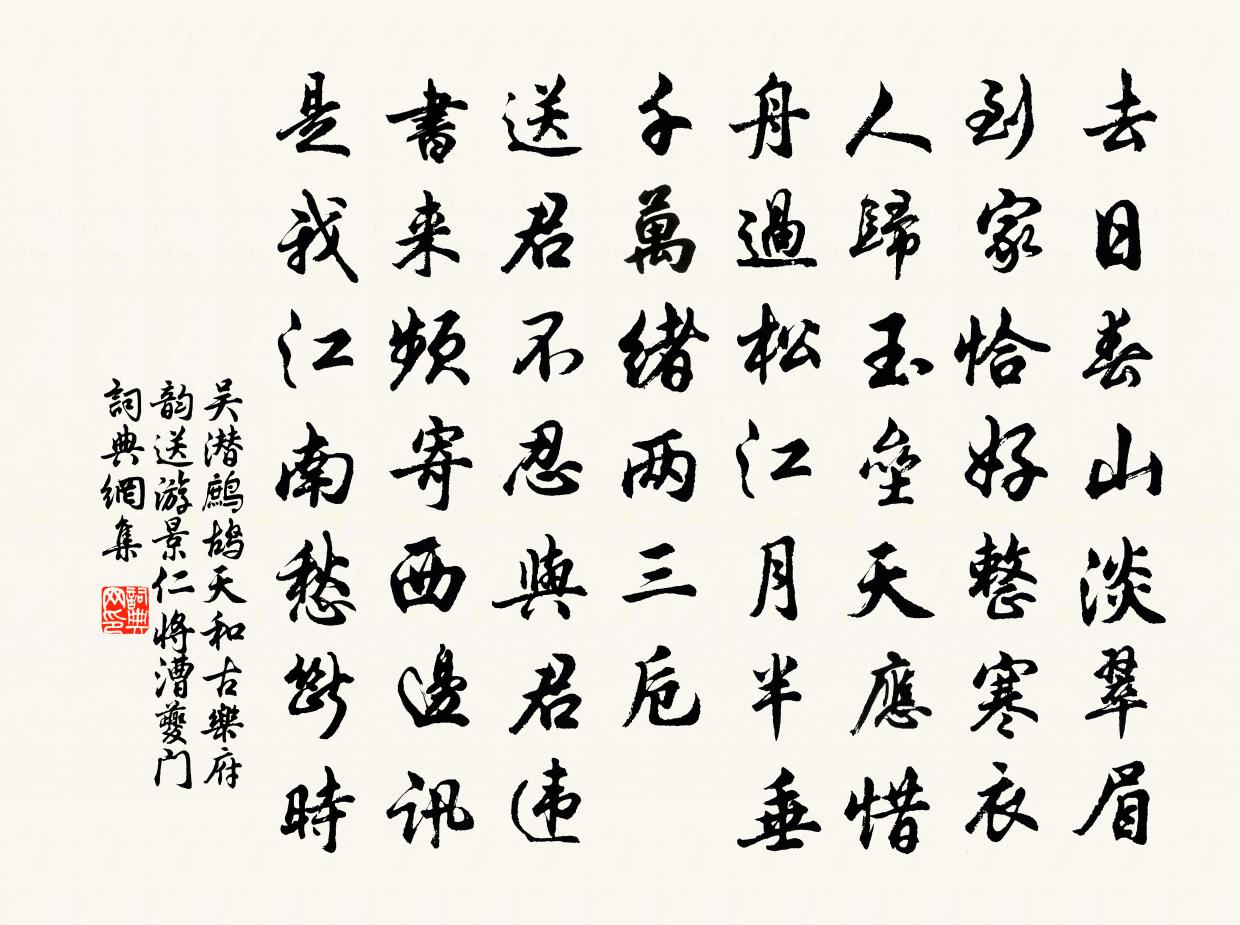 去日春山淡翠眉
到家恰好整寒衣
人歸玉壘天應惜
舟過松江月半垂
千萬緒兩三卮
送君不忍與君違
書来頻寄西邊訊
是我江南愁斷時
吴潜鷓鴣天和古樂府
韵送游景仁将漕夔门
詞典網集
詞典网印